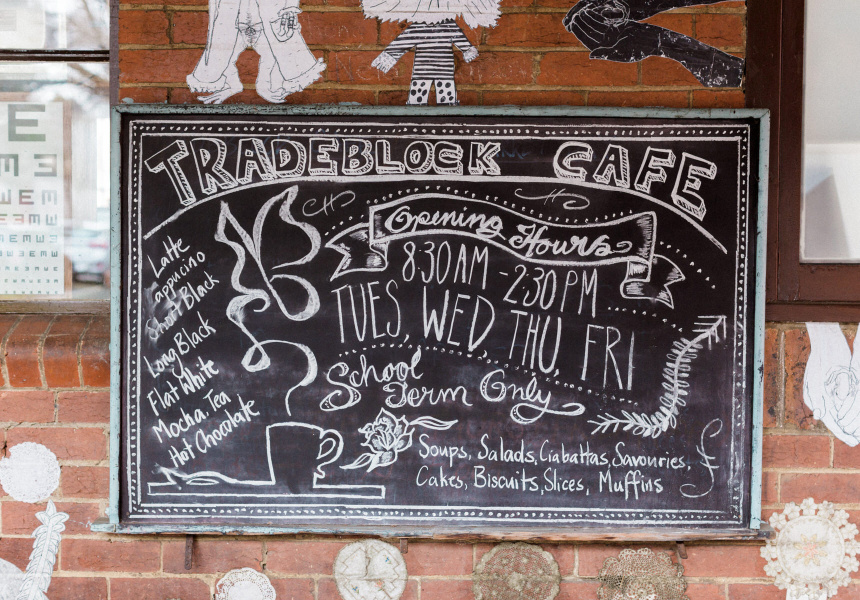 TRADEBLOCK CAFE
Opening Hours
8:30AM - 2:30PM
TUES, WED THU, FRI
School
Term Only
Latte
Cappucino
Short Black
Long Black
Flat White
Mocha, Tea
Hot Chocolate
Soups, Salads, Ciabattas, Savouries,
Cakes, Biscuits, Slices, Muffins
E